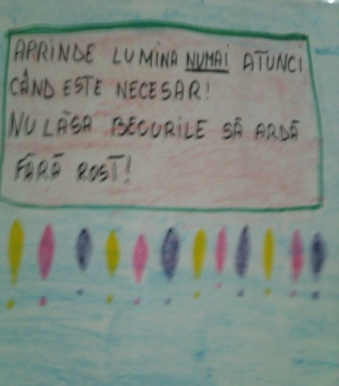 APRINDE LUMINA NUMAI ATUNCI
CÂND ESTE NECESAR!
NU LĂSA BECURILE SĂ ARDĂ
FĂRĂ ROST!